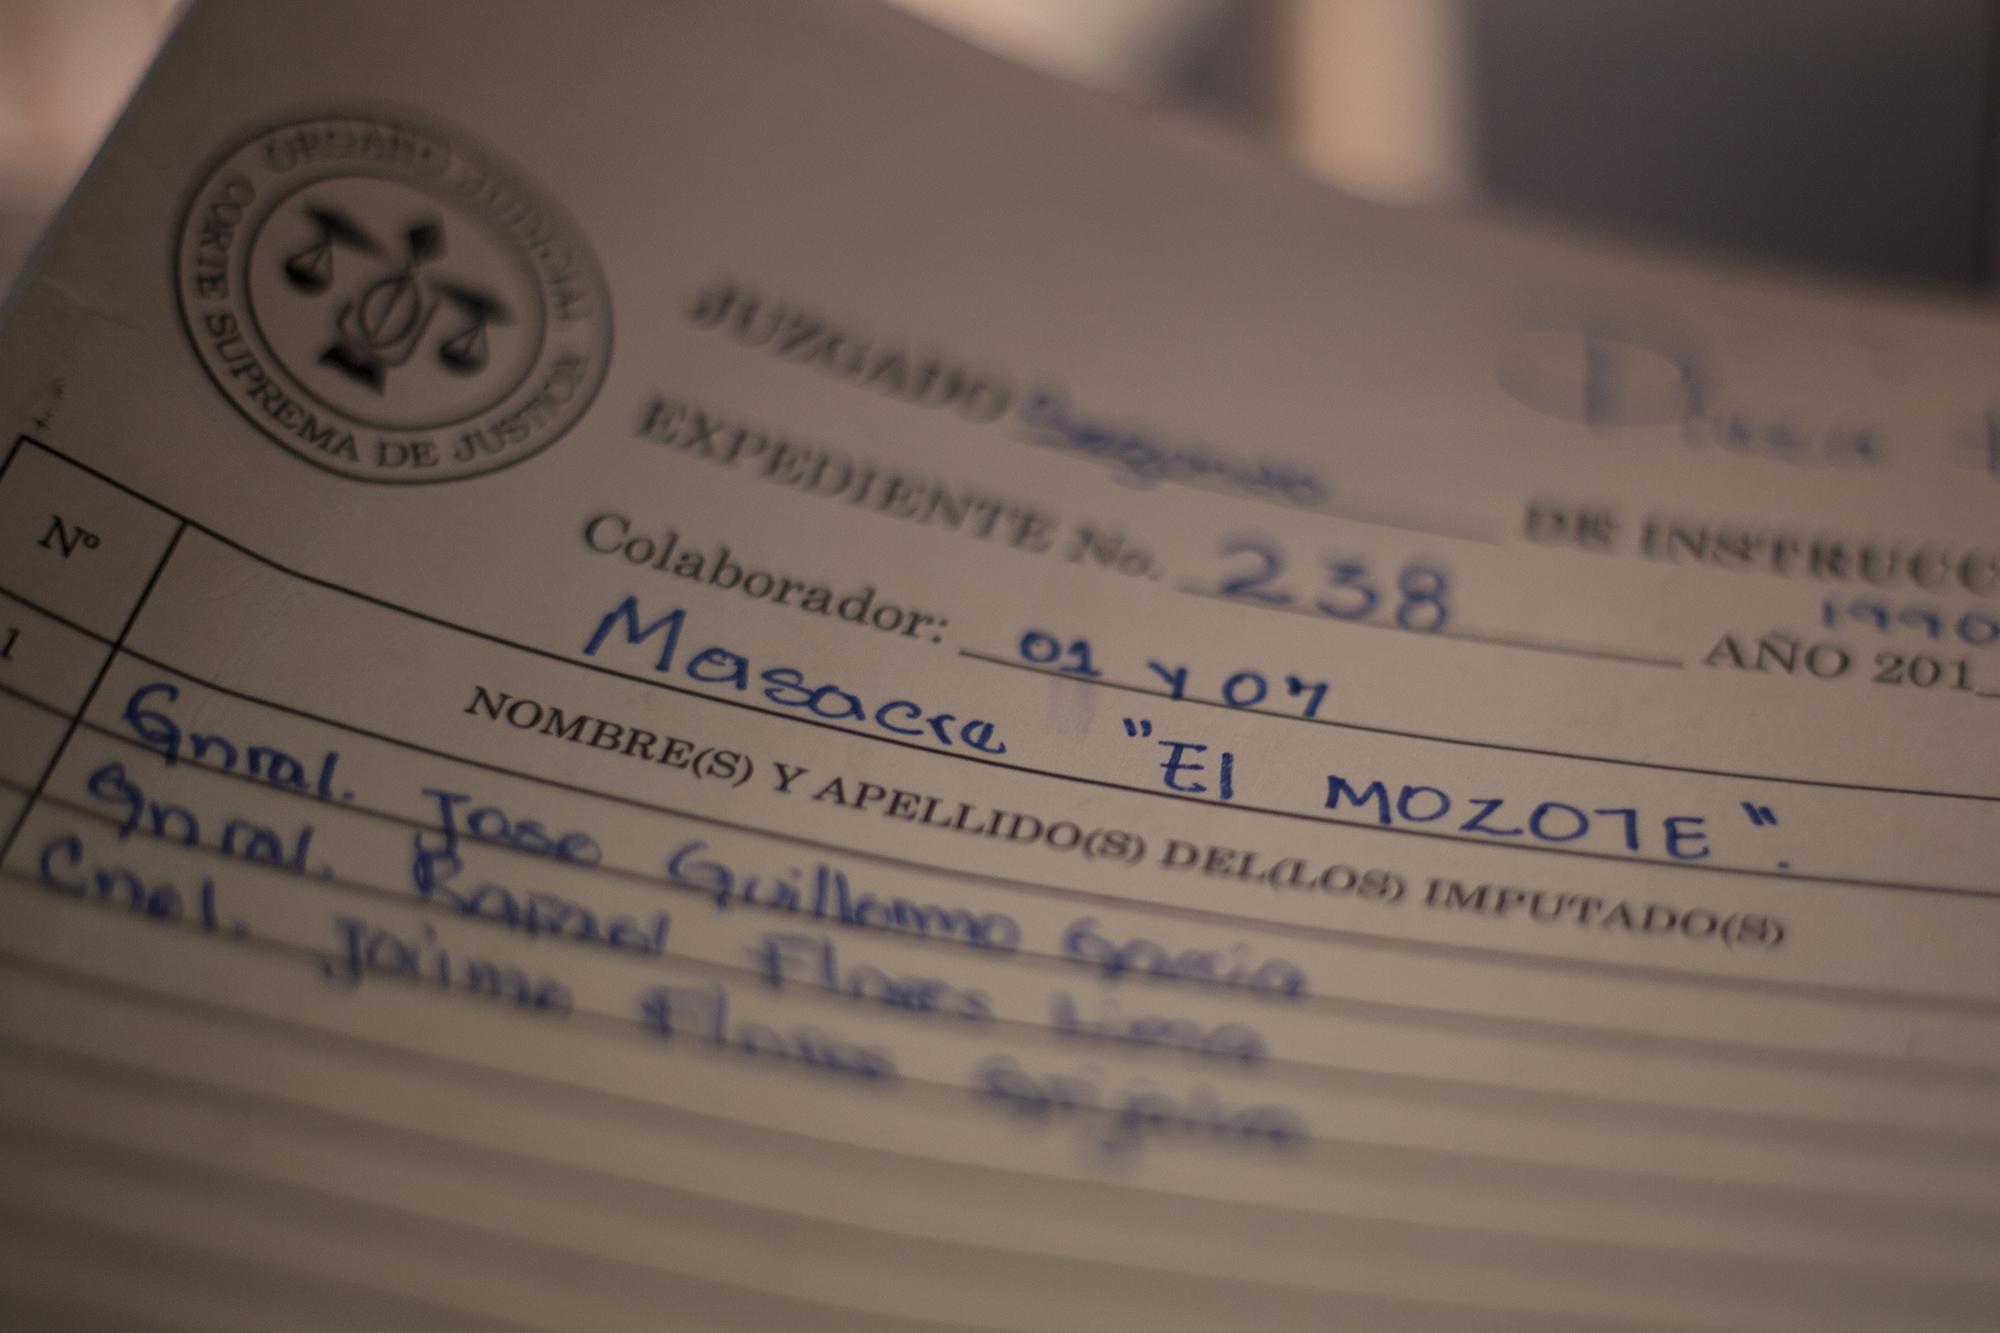 ORGANO JUDICIAL
CORTE SUPREMA DE JUSTICIA
JUZGADO Segundo DE INSTRUCC
EXPEDIENTE No. 238 AÑO 201_ 1990
Colaborador: 01 y 07
Nº
Masacre "El MOZOTE".
NOMBRE(S) Y APELLIDO(S) DEL(LOS) IMPUTADO(S)
1 Gnral. Jose Guillermo Garcia
Gnral. Rafael Flores Lima
Cnel. Jaime Flores